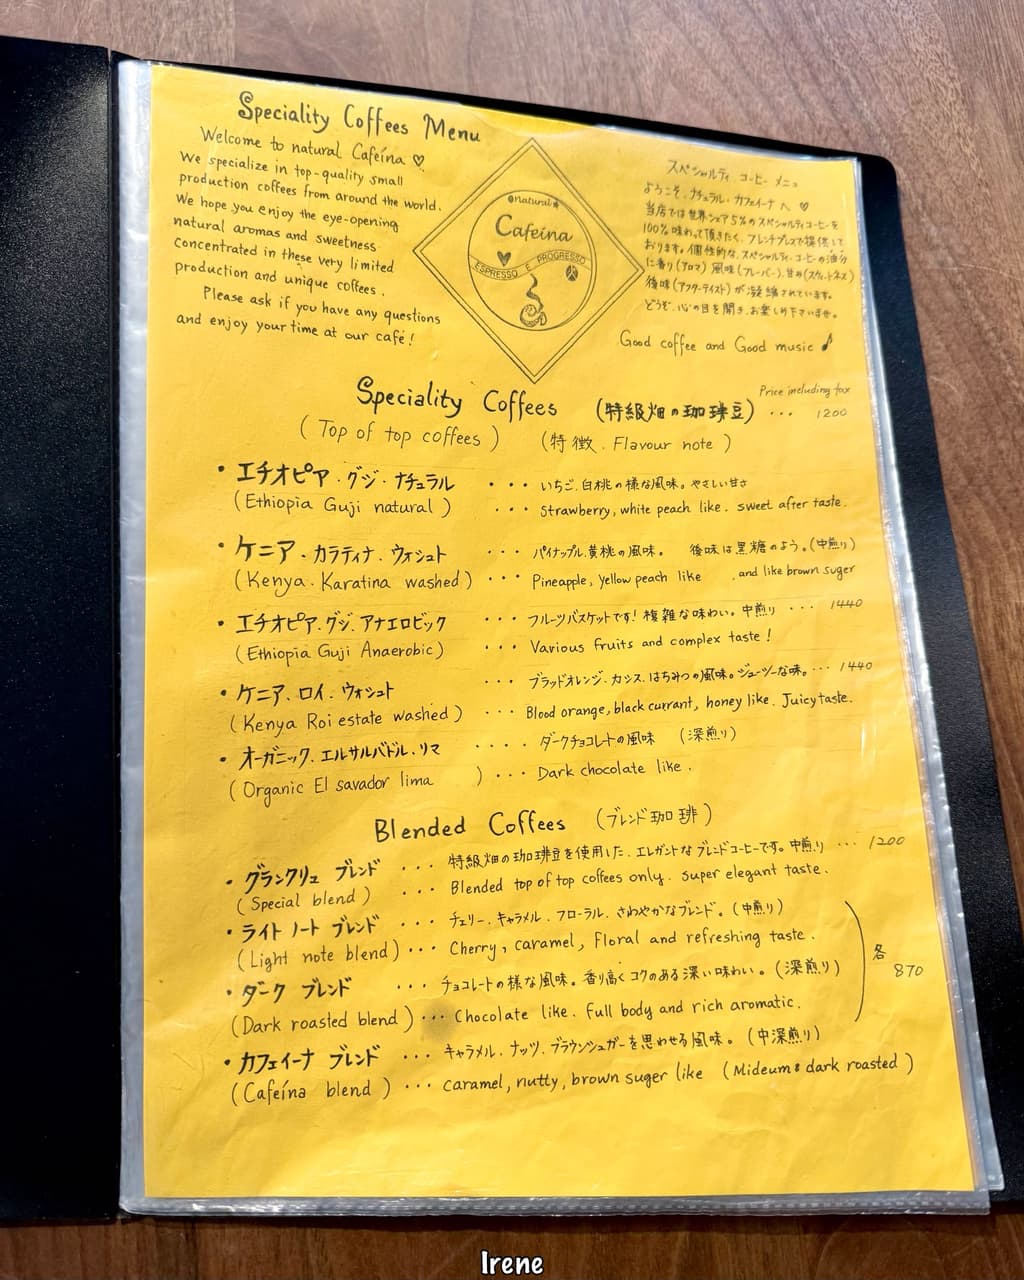 Speciality Coffees Menu
Welcome to natural Cafeína ♡
We specialize in top-quality small
production coffees from around the world.
We hope you enjoy the eye-opening
natural aromas and sweetness
concentrated in these very limited
production and unique coffees.
Please ask if you have any questions
and enjoy your time at our café!
natural
Cafeína
ESPRESSO E PROGRESSO
スペシャルティ コーヒー メニュー
ようこそ、ナチュラル・カフェイーナ へ ♡
当店では世界シェア5%のスペシャルティコーヒーを
100%味わって頂きたく、フレンチプレスで提供して
おります。個性的な、スペシャルティコーヒーの油分
に香り(アロマ) 風味(フレーバー)、甘み(スウィートネス)
後味(アフターテイスト)が凝縮されています。
どうぞ、心の目を開き、お楽しみ下さいませ。
Good coffee and Good music ♪
Price including tax
Speciality Coffees (特級畑の珈琲豆) ... 1200
(Top of top coffees) (特徴. Flavour note)
・エチオピア・グジ・ナチュラル ... いちご、白桃の様な風味。やさしい甘さ
(Ethiopia Guji natural) ... Strawberry, white peach like. sweet after taste.
・ケニア・カラティナ・ウォシュト ... パイナップル、黄桃の風味。 後味は黒糖のよう。(中煎り)
(Kenya. Karatina washed) ... Pineapple, yellow peach like . and like brown suger
・エチオピア・グジ・アナエロビック ... フルーツバスケットです! 複雑な味わい。中煎り ... 1440
(Ethiopia Guji Anaerobic) ... Various fruits and complex taste!
・ケニア、ロイ、ウォシュト ... ブラッドオレンジ、カシス、はちみつの風味。ジューシーな味。... 1440
(Kenya Roi estate washed) ... Blood orange, black currant, honey like. Juicy taste.
・オーガニック、エルサルバドル・リマ .... ダークチョコレートの風味 (深煎り)
(Organic El savador lima ) ... Dark chocolate like.
Blended Coffees (ブレンド珈琲)
・グランクリュ ブレンド ... 特級畑の珈琲豆を使用した、エレガントなブレンドコーヒーです。中煎り ... 1200
(Special blend) ... Blended top of top coffees only. super elegant taste.
・ライト ノート ブレンド ... チェリー、キャラメル、フローラル、さわやかなブレンド。(中煎り)
(Light note blend) ... Cherry, caramel, Floral and refreshing taste.
・ダーク ブレンド ... チョコレートの様な風味。香り高くコクのある深い味わい。(深煎り)
各 870
(Dark roasted blend) ... Chocolate like. full body and rich aromatic.
・カフェイーナ ブレンド ... キャラメル、ナッツ、ブラウンシュガーを思わせる風味。(中深煎り)
(Cafeína blend) ... caramel, nutty, brown suger like (Mideum & dark roasted)
Irene